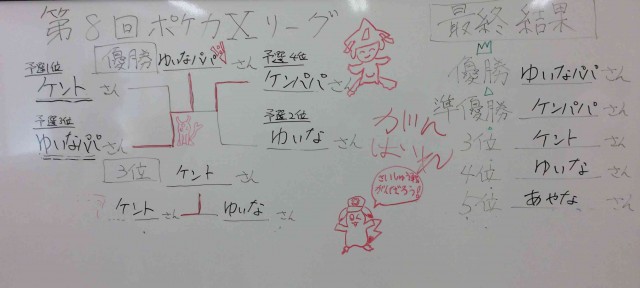 第8回ポケカXリーグ
優勝 ゆいなパパさん
予選1位
ケントさん
予選4位
ケンパパさん
予選3位
ゆいなパパさん
予選2位
ゆいなさん
3位 ケントさん
ケントさん ゆいなさん
さいしゅう戦
がんばろう!
最終結果
優勝 ゆいなパパさん
準優勝 ケンパパさん
3位 ケントさん
4位 ゆいなさん
5位 あやなさん